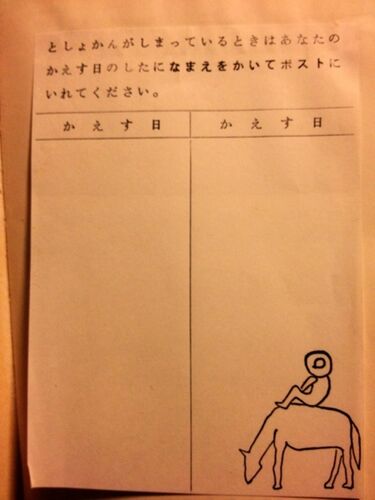 としょかんがしまっているときはあなたの
かえす日のしたになまえをかいてポストに
いれてください。
かえす日 かえす日